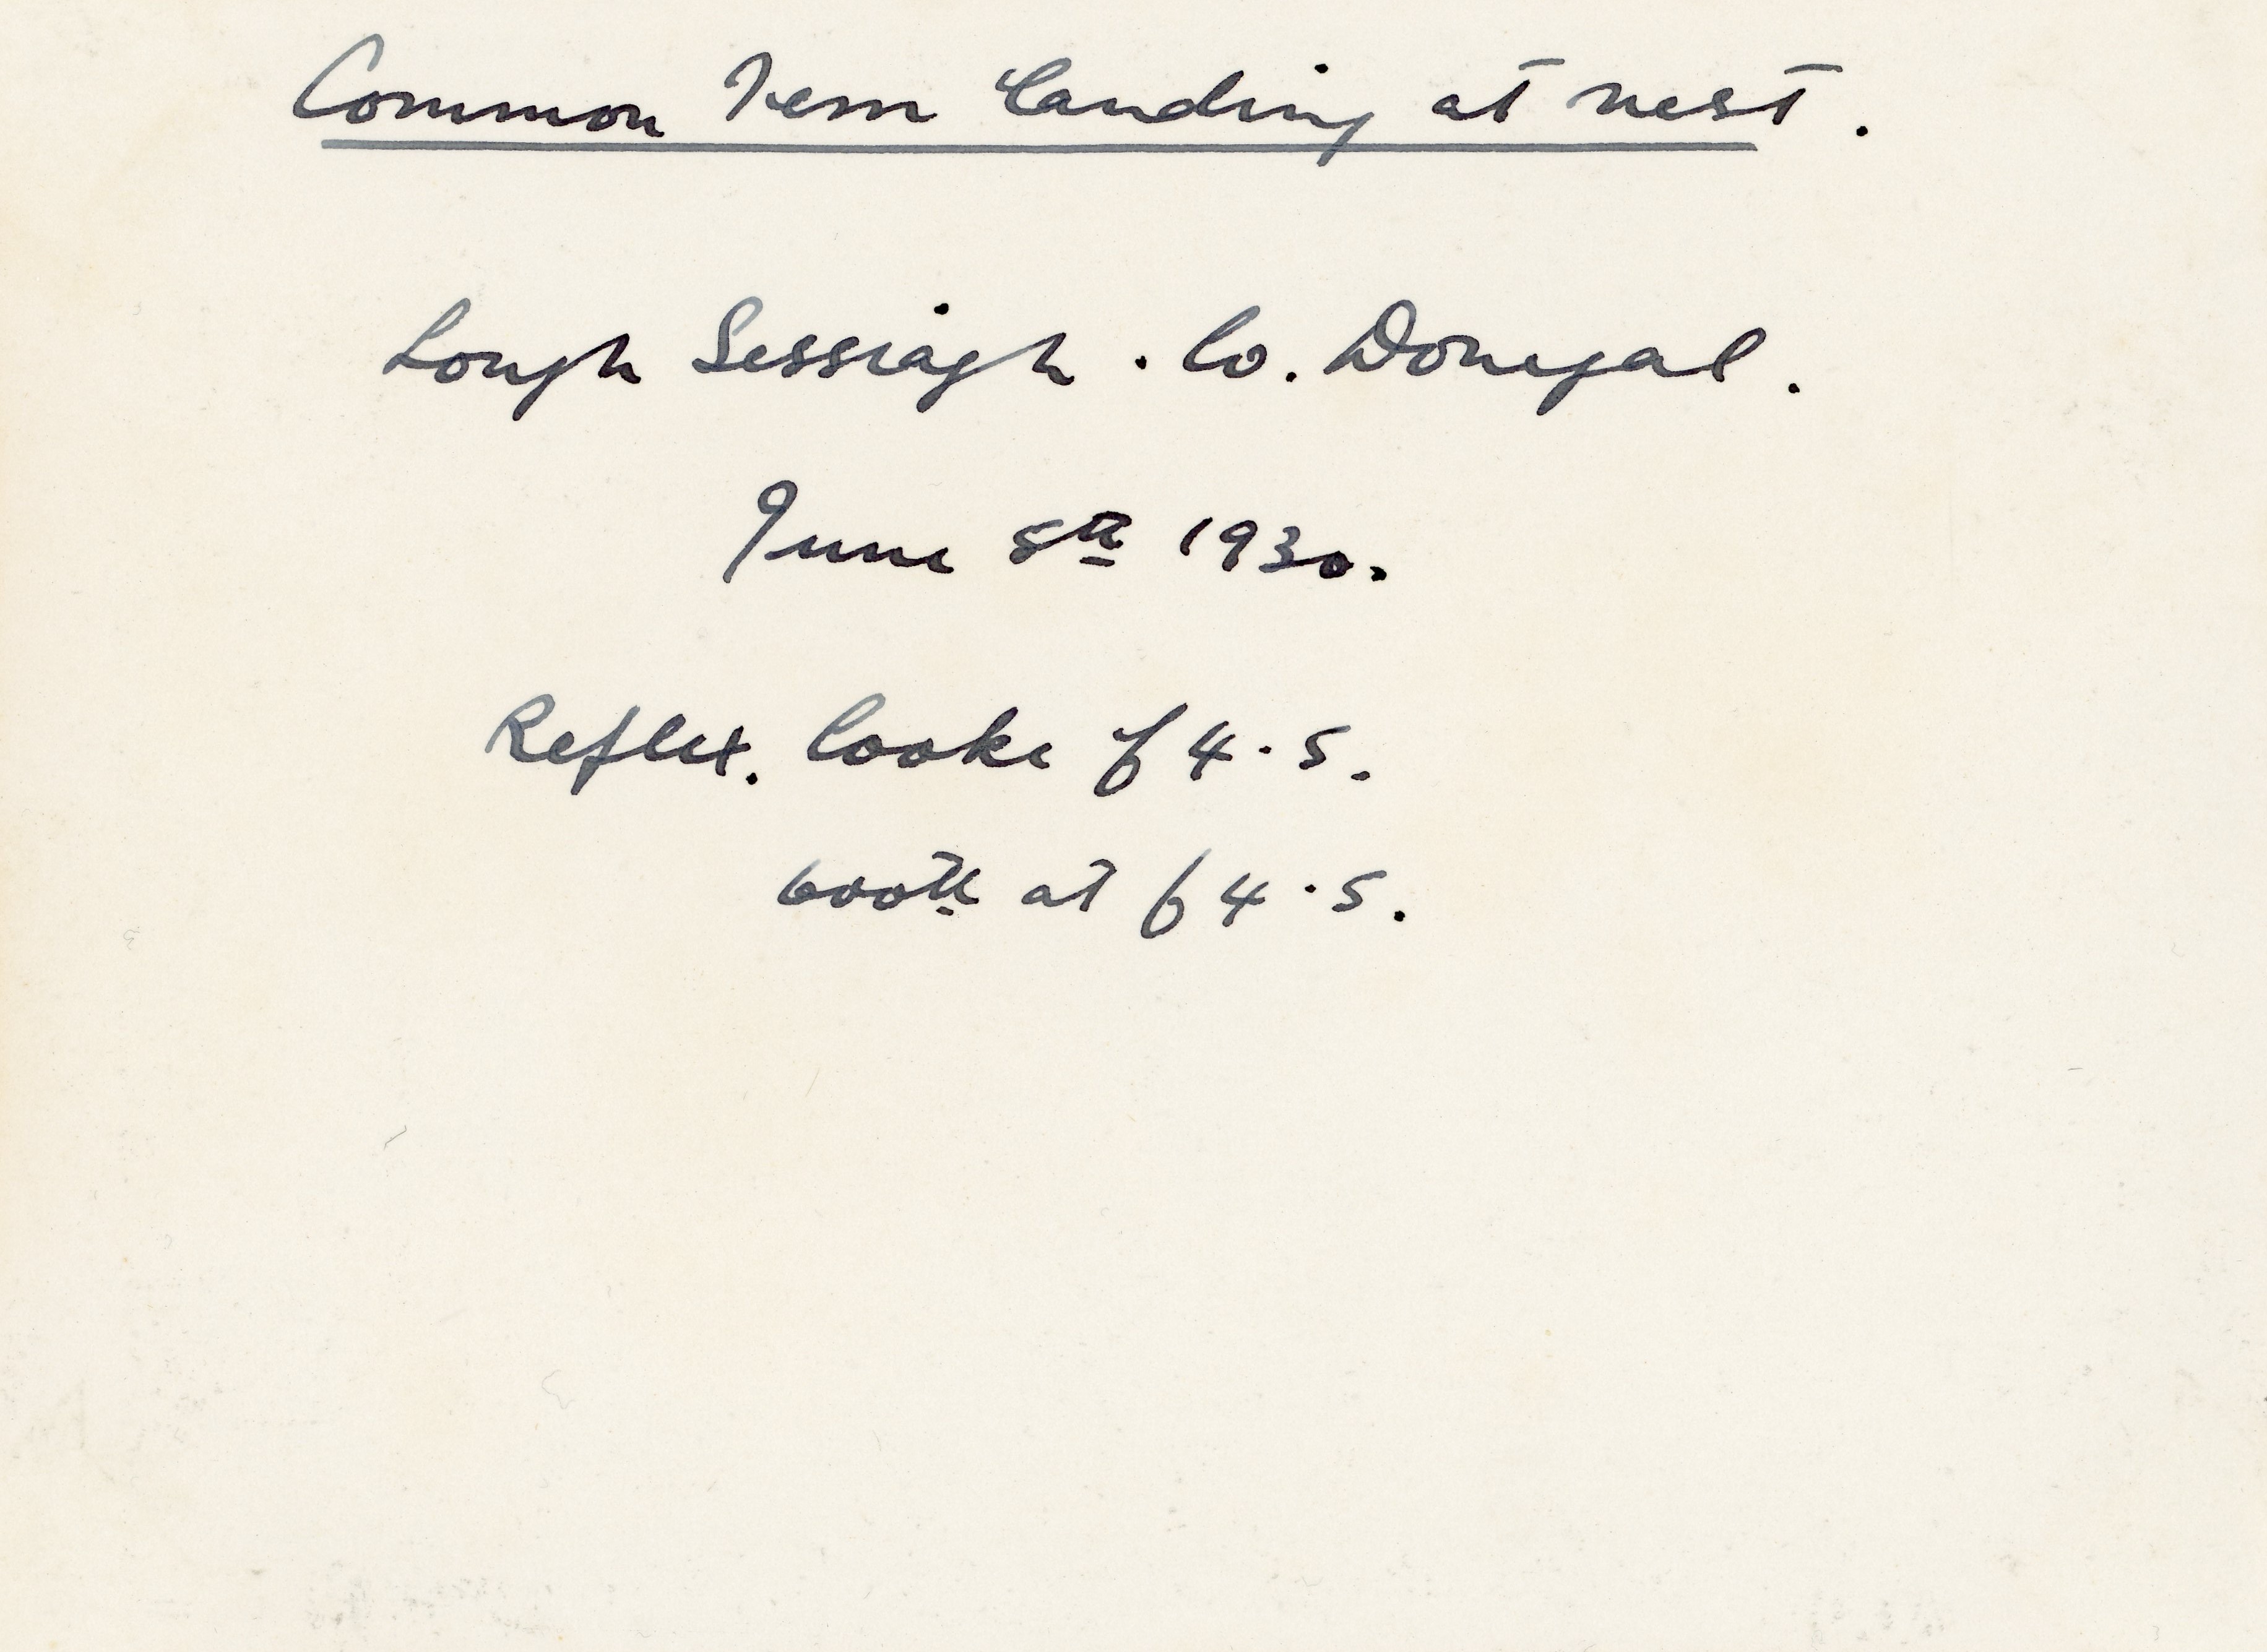 Common Tern landing at nest.
Lough Sessiagh. Co. Donegal.
June 8th 1930.
Reflex. Cooke f4.5.
600th at f4.5.